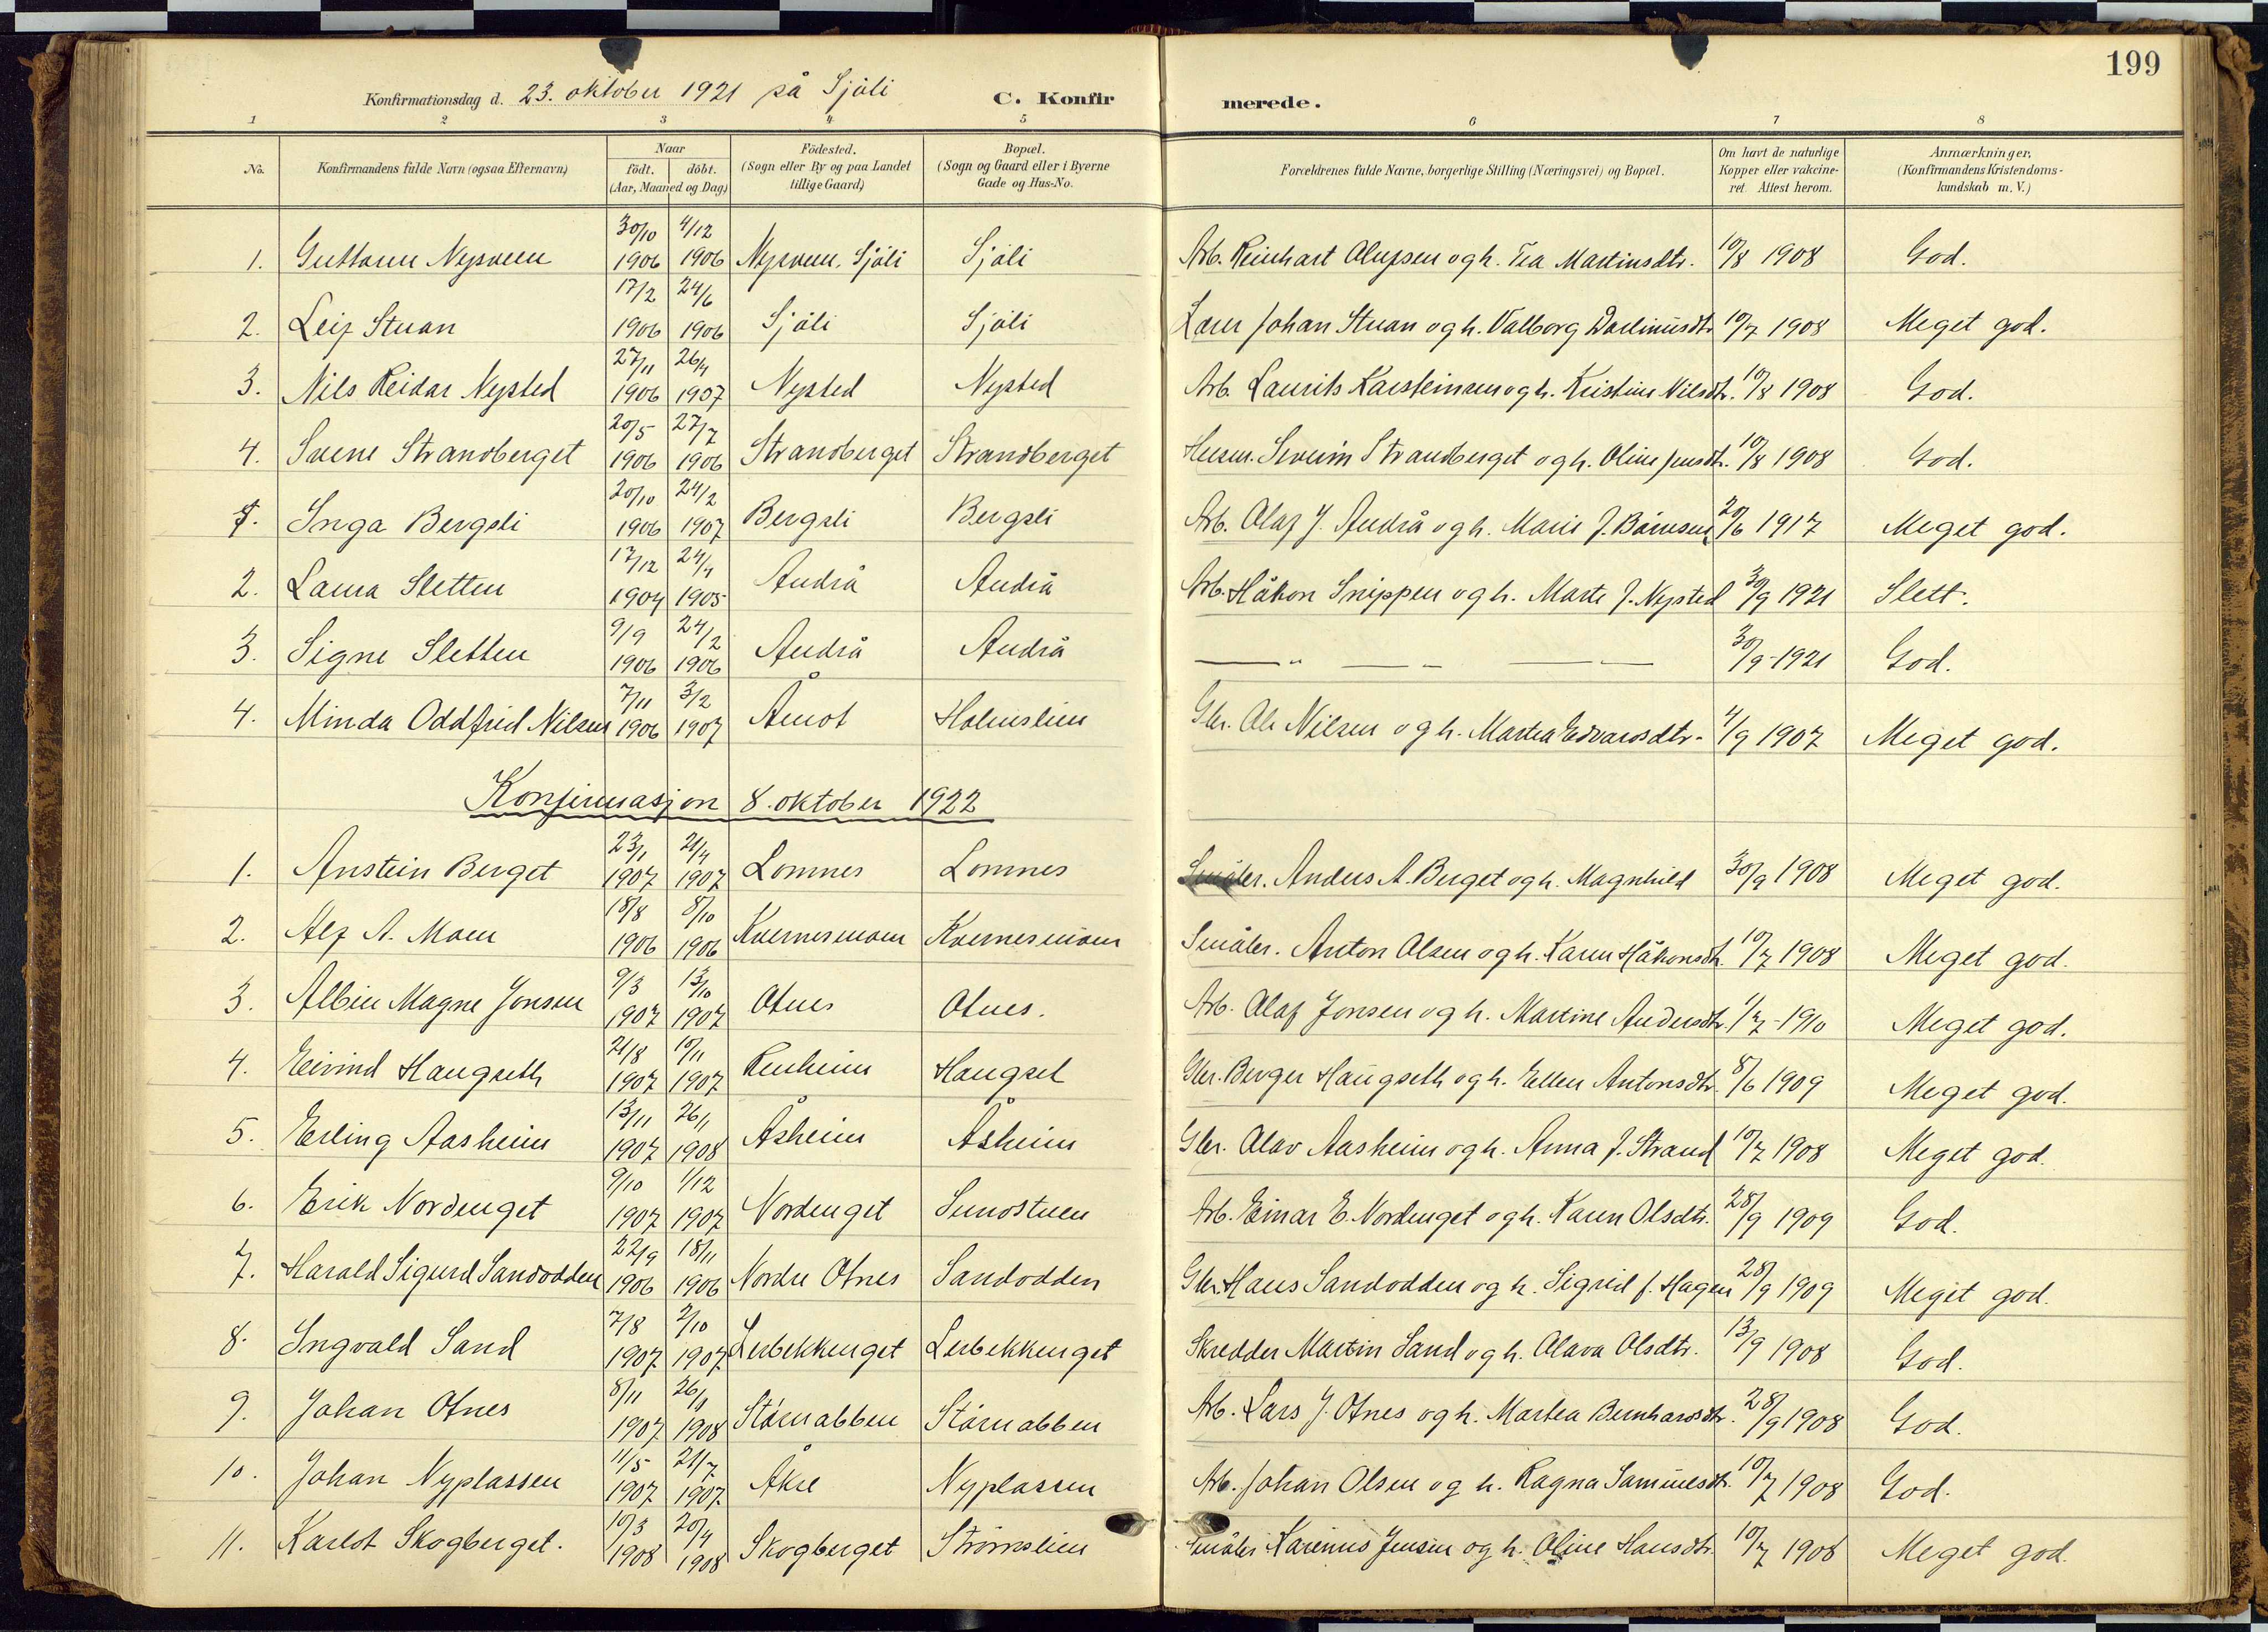 199
Konfirmationsdag d. 23. oktober 1921 på Sjöli C. Konfirmerede.
1 2 3 4 5 6 7 8
No. Konfirmandens fulde Navn (ogsaa Efternavn) Naar født. døbt. (Aar, Maaned og Dag) Födested. (Sogn eller By og paa Landet tillige Gaard) Bopæl. (Sogn og Gaard eller i Byerne Gade og Hus-No. Forældrenes fulde Navne, borgerlige Stilling (Næringsvei) og Bopæl. Om havt de naturlige Kopper eller vakcineret. Attest herom. Anmærkninger. (Konfirmandens Kristendomskundskab m. V.)
1. Guttorm Nysveen 30/10 1906 4/12 1906 Nysveen, Sjöli Sjöli Arb. Reinhart Olufsen og h. Tea Martinsdtr. 10/8 1908 God.
2. Leif Stuan 17/2 1906 24/6 1906 Sjöli Sjöli Lærer Johan Stuan og h. Valborg 10/7 1908 Meget god.
3. Nils Reidar Nysted 27/11 1906 26/4 1907 Nysted Nysted Arb. Laurits Karsteinsen og h. Kristine Nilsdtr. 10/8 1908 God.
4. Sverre Strandberget 20/5 1906 27/7 1906 Strandberget Strandberget Severin Strandberget og h. Oline Jensdtr. 10/8 1908 God.
1. Inga Bergsli 20/10 1906 24/2 1907 Bergsli Bergsli Arb. Olaf J. Andrå og h. Marie J. 20/6 1917 Meget god.
2. Laura Sletten 17/12 1904 24/4 1905 Andrå Andrå Arb. Håkon Snippen og h. Marte J. Nysted 30/9 1921 Slett.
3. Signe Sletten 9/9 1906 24/2 1906 Andrå Andrå — " — — — — 30/9-1921 God.
4. Minda Oddfrid Nilsen 7/11 1906 3/2 1907 Åmot Holmslien Gbr. Ole Nilsen og h. Martea Edvardsdtr. 4/9 1907 Meget god.
Konfirmasjon 8. oktober 1922
1. Anstein Berget 23/1 1907 21/4 1907 Lomnes Lomnes Småbr. Anders A. Berget og h. Magnhild 30/9 1908 Meget god.
2. Alf A. Moen 18/8 1906 8/10 1906 Kvernesmoen Kvernesmoen Småbr. Anton Olsen og h. Karen Håkonsdtr. 10/7 1908 Meget god.
3. Albin Magne Jonsen 9/3 1907 13/10 1907 Otnes Otnes. Arb. Olaf Jonsen og h. Martine Andersdtr. 1/7-1910 Meget god.
4. Eivind Haugseth 21/8 1907 10/11 1907 Renheim Haugset Gbr. Berger Haugseth og h. Ellen Antonsdtr. 8/6 1909 Meget god.
5. Erling Aasheim 13/11 1907 26/1 1908 Åsheim Åsheim Gbr. Olav Aasheim og h. Anna J. Strand 10/7 1908 Meget god.
6. Erik Nordenget 9/10 1907 1/12 1907 Nordenget Sundstuen Arb. Einar E. Nordenget og h. Karen Olsdtr. 28/9 1909 God.
7. Harald Sigurd Sandodden 22/9 1906 18/11 1906 Nordre Otnes Sandodden Gbr. Hans Sandodden og h. Sigrid f. Hagen 28/9 1909 Meget god.
8. Ingvald Sand 7/8 1907 2/10 1907 Lerbekkenget Lerbekkenget Skredder Martin Sand og h. Olava Olsdtr. 13/9 1908 God.
9. Johan Otnes 8/11 1907 26/1 1908 Störnabben Störnabben Arb. Lars J. Otnes og h. Martea Bernhardsdtr. 28/9 1908 God.
10. Johan Nyplassen 11/5 1907 21/7 1907 Åkre Nyplassen Arb. Johan Olsen og h. Ragna Samuelsdtr. 10/7 1908 God.
11. Karlot Skogberget. 10/3 1908 20/4 1908 Skogberget Strömslien Småbr. Karenus Jensen og h. Oline Hansdtr. 10/7 1908 Meget god.